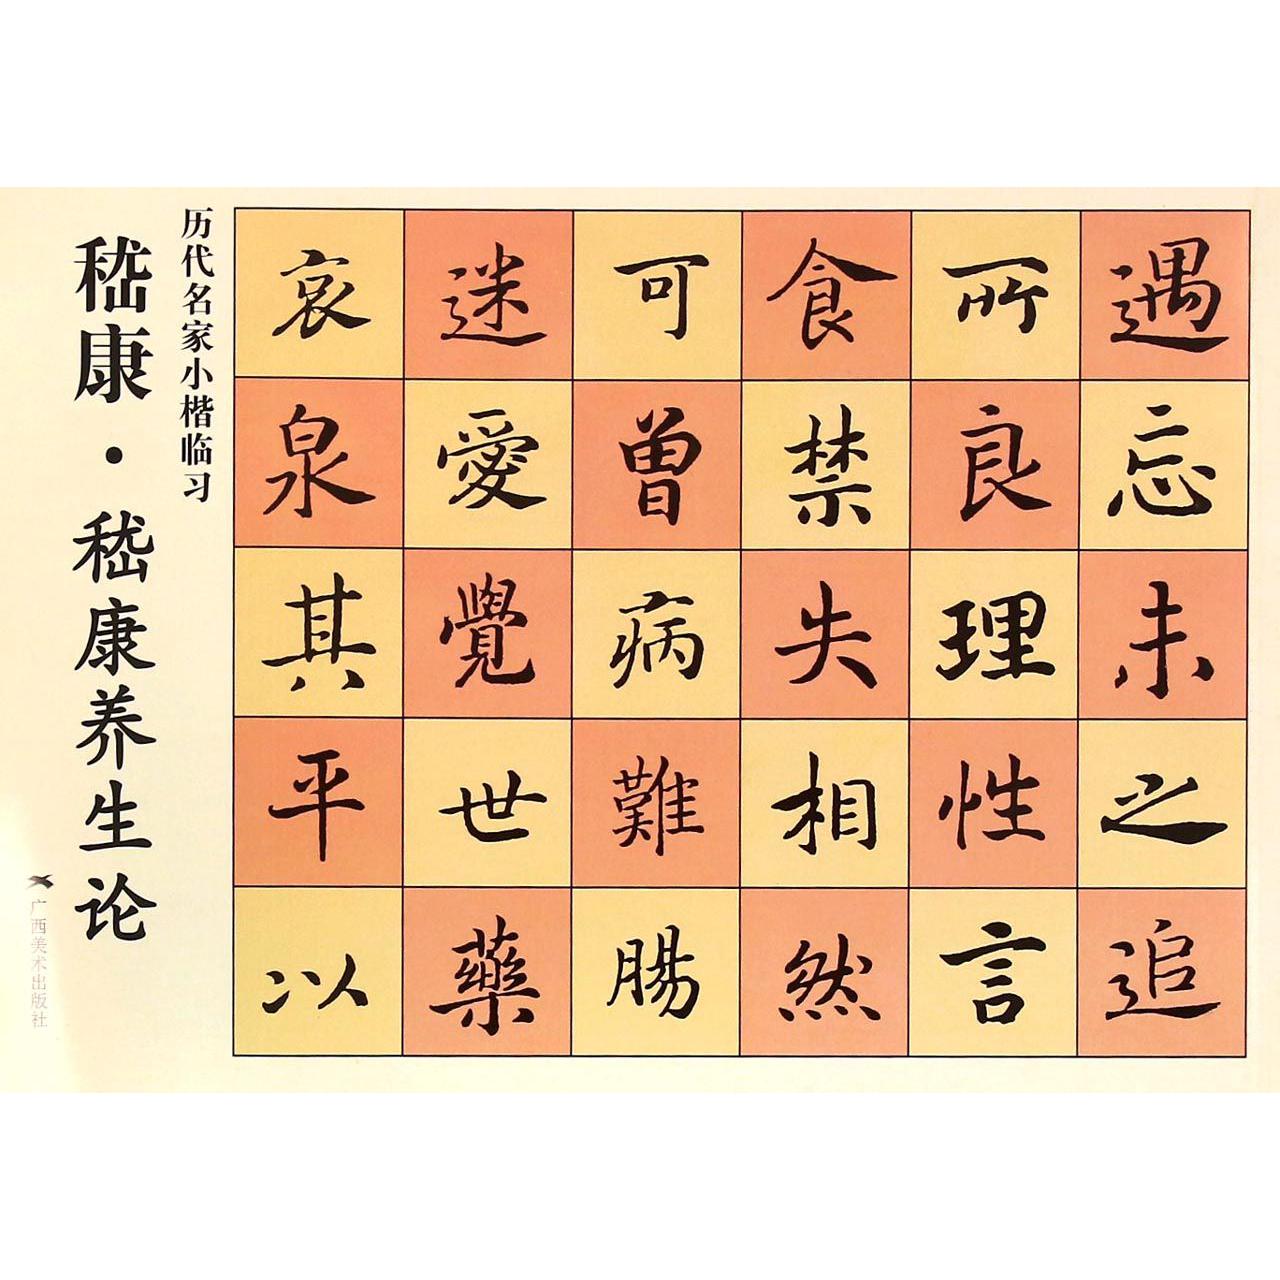 遇忘未之追
所良理性言
食禁失相然
可曾病難腸
迷愛覺世藥
哀泉其平以
历代名家小楷临习
嵇康·嵇康养生论
广西美术出版社